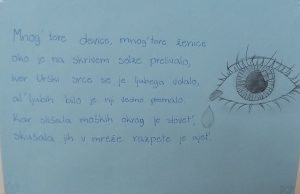 Mnog'tere device, mnog'tere ženice
oko je na skrivem solze prelivalo,
ker Urški srce se je ljubega vdalo,
al' ljubih bilo je nji vedno premalo.
Kar slišala moških okrog je slovet',
skušala jih v mreže razpete je ujet'.